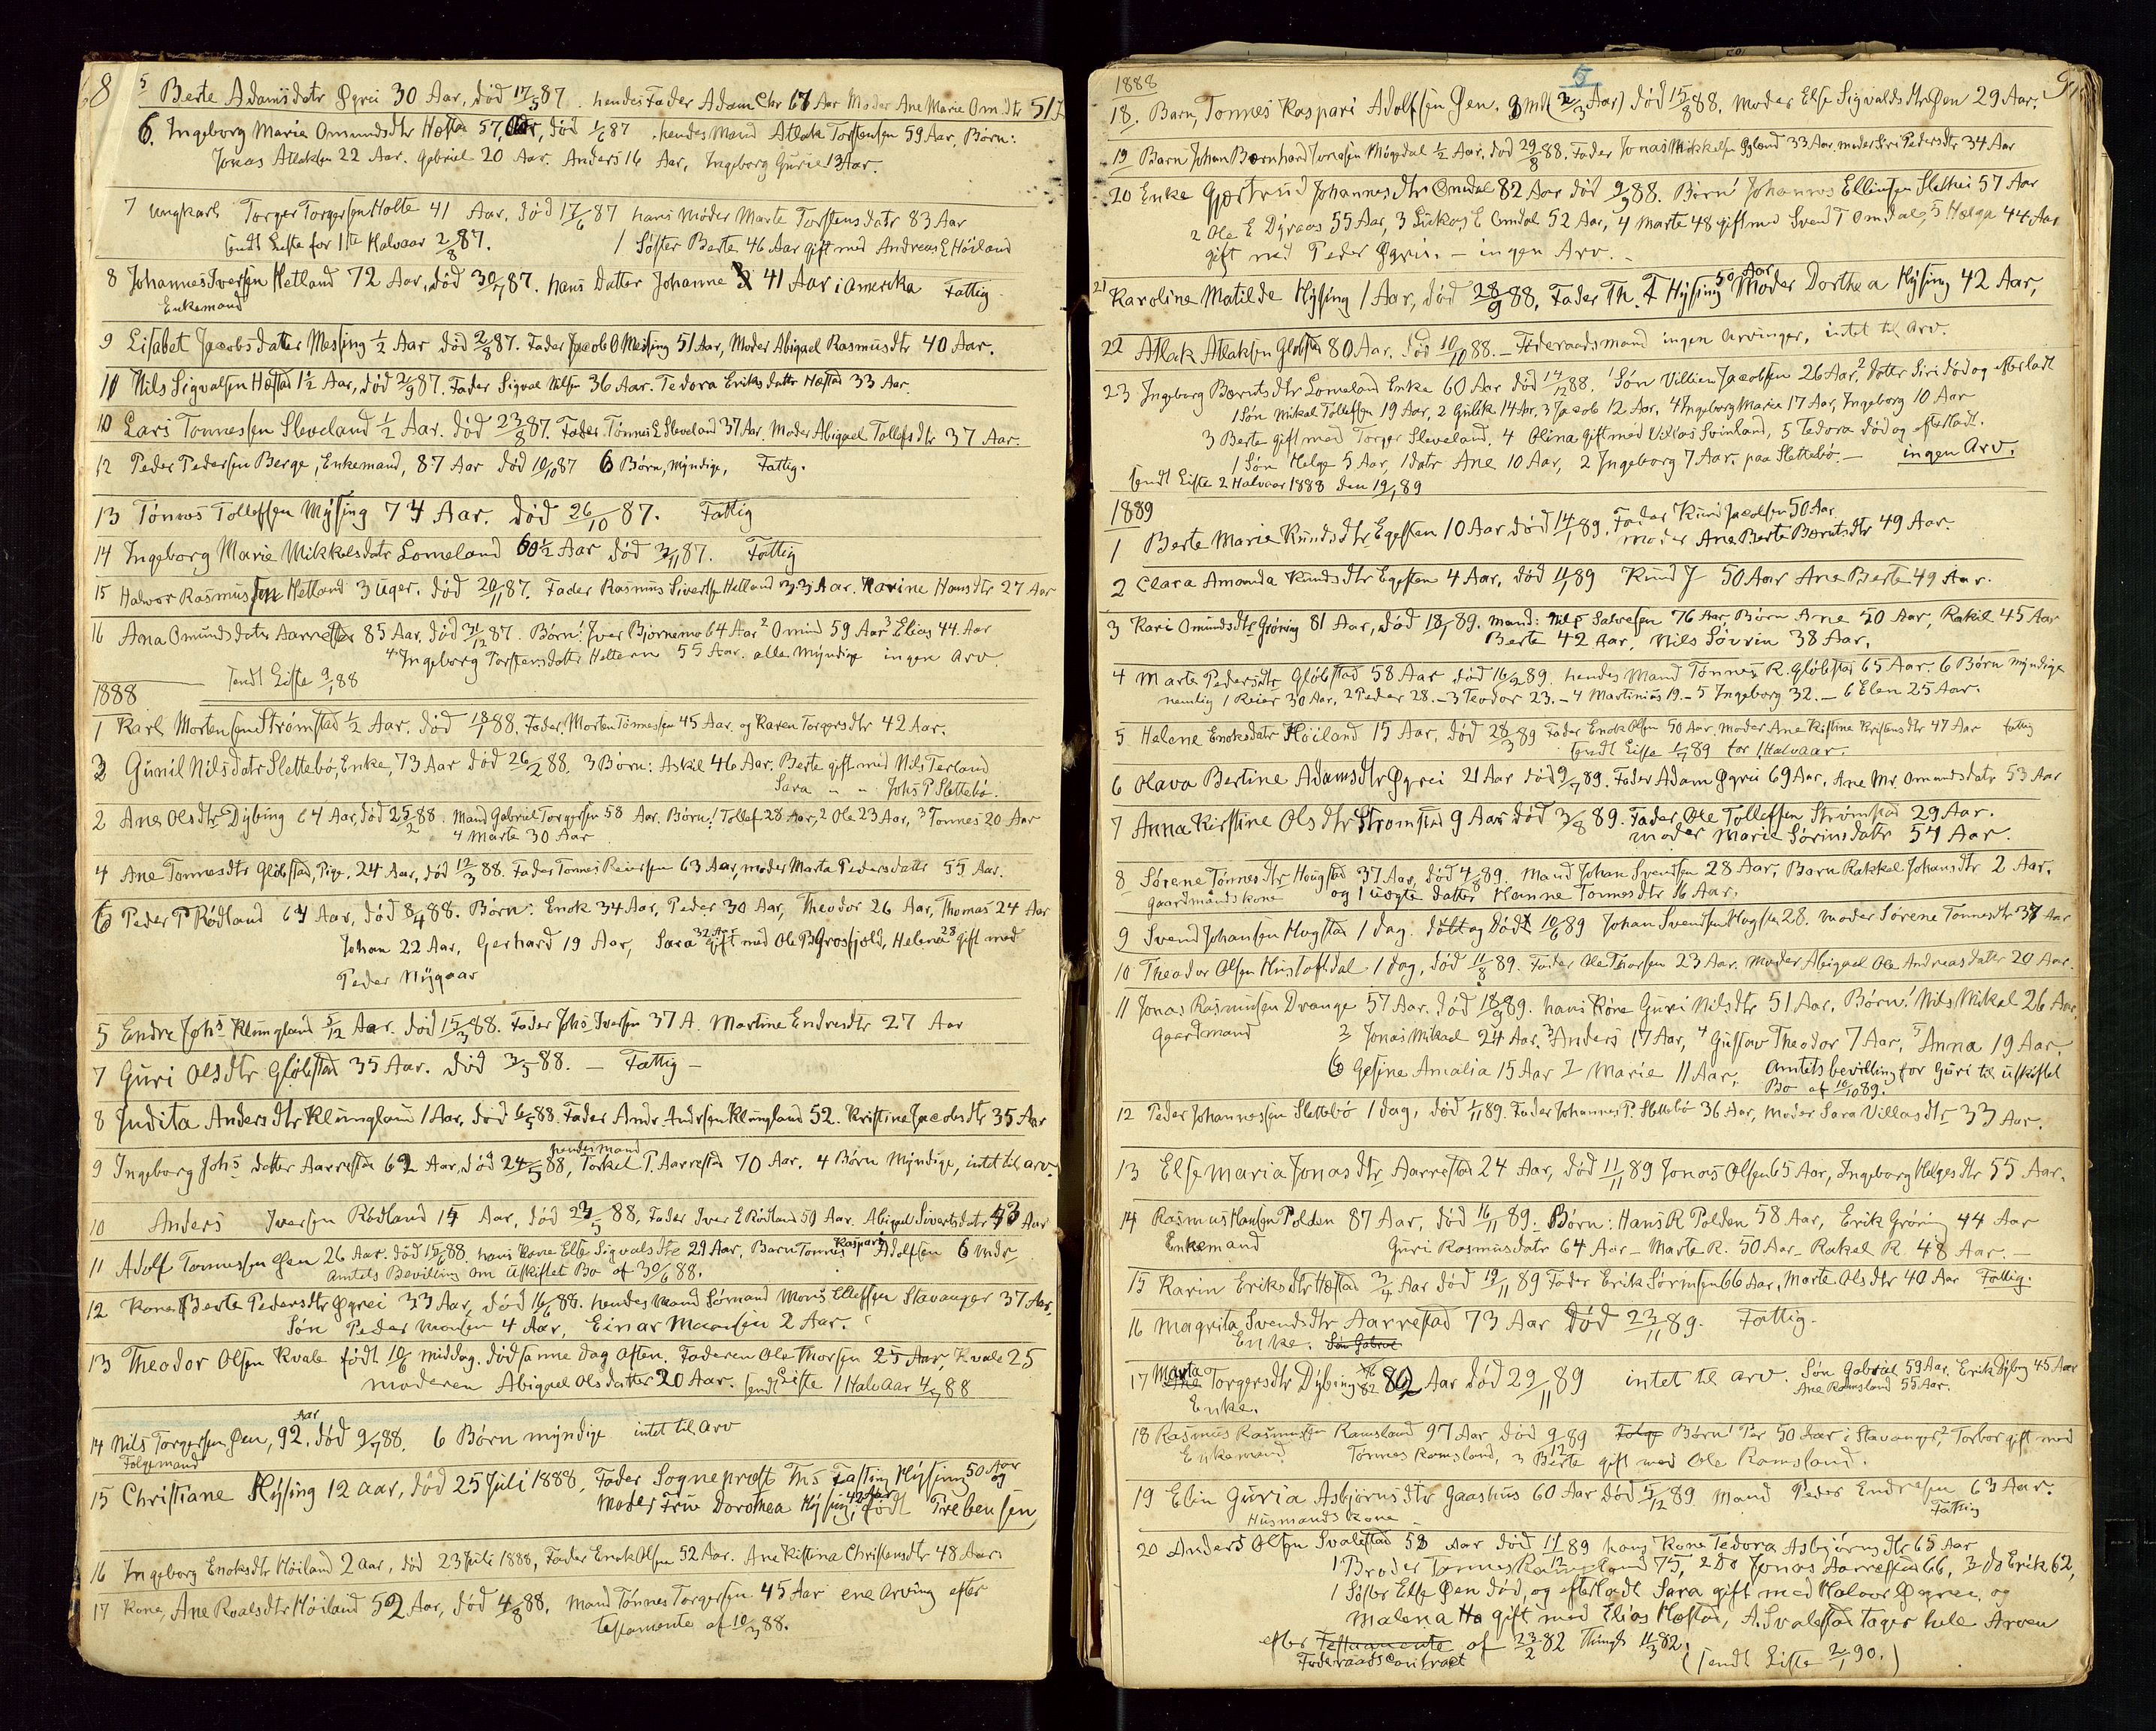 8
5 Berte Adamsdatr Øgrei 30 Aar, død 17/5 87. hendes Fader Adam Chr 67 Aar Moder Ane Marie Om dtr 51 A
6. Ingeborg Maria Omundsdtr Hæstad 57 Aar, død 1/6 87. hendes Mand Atlak Torstensen 59 Aar, Børn:
Jonas Atlaksen 22 Aar. Gabriel 20 Aar. Anders 16 Aar, Ingeborg Gurie 13 Aar.
7 Ungkarl Torger Torgersen Holte 41 Aar, død 17/6 87 hans Moder Marte Torstensdatr 83 Aar
sendt Liste for 1ste Halvaar 2/8 87. 1 Søster Berte 46 Aar gift med Andreas E Høiland
8 Johannes Iversen Hetland 72 Aar, død 30/7 87. hans Datter Johanne 41 Aar i Amerika Fattig
Enkemand
9 Lisabet Jacobsdatter Messing 1/2 Aar død 2/8 87. Fader Jacob O Messing 51 Aar, Moder Abigael Rasmusdtr 40 Aar.
11 Nils Sigvalsen Hæstad 1 1/2 Aar, død 2/9 87. Fader Sigval Nilsen 36 Aar. Tedora Eriksdatter Hæstad 33 Aar.
10 Lars Tonnessen Sleveland 1/2 Aar. død 23/8 87. Fader Tønnes L Sleveland 37 Aar. Moder Abigael Tollefsdtr 37 Aar.
12 Peder Pedersen Berge, Enkemand, 87 Aar død 10/10 87 6 Børn, Myndige, Fattig.
13 Tønnes Tollefsen Mysing 74 Aar. død 26/10 87. Fattig
14 Ingeborg Marie Mikkelsdatr Lomeland 60 1/2 Aar død 3/11 87. Fattig
15 Halvor Rasmussen Hetland 3 Uger. død 20/11 87. Fader Rasmus Sivertsen Hetland 33 Aar. Karine Hansdtr 27 Aar
16 Ana Omundsdatr Aarrestad 85 Aar. død 31/12 87. Børn: 1 Iver Bjornemo 64 Aar 2 Omund 59 Aar 3 Elias 44 Aar
4 Ingeborg Torstensdatter Hettern 55 Aar. alle Myndige ingen Arv.
1888 sendt Liste 9/1 88
1 Karl Mortensen Strømstad 1/2 Aar. død 18/1 88. Fader, Morten Tønnessen 45 Aar og Karen Torgersdtr 42 Aar.
3 Gunil Nilsdatr Slettebø, Enke, 73 Aar død 26/2 88. 3 Børn: Askil 46 Aar, Berte gift med Nils Terland
Sara " " Johs P Slettebø.
2 Ane Olsdtr Dybing 64 Aar, død 25/2 88. Mand Gabriel Torgersen 58 Aar. Børn: 1 Tollef 28 Aar, 2 Ole 23 Aar, 3 Tonnes 20 Aar
4 Marte 30 Aar
4 Ane Tonnesdtr Gløbstad, Pige, 24 Aar, død 12/3 88. Fader Tonnes Reiersen 63 Aar, moder Marta Pedersdatter 55 Aar.
6 Peder P Rødland 64 Aar, død 8/4 88. Børn: Enok 34 Aar, Peder 30 Aar, Theodor 26 Aar, Thomas 24 Aar
Johan 22 Aar, Gerhard 19 Aar, Sara 32 Aar gift med Ole B Grosfjeld, Helena 28 gift med
Peder Nygaar
5 Endre Johs Klungland 5/12 Aar. død 15/3 88. Fader Johs Iversen 37 A. Martine Endresdtr 27 Aar
7 Guri Olsdtr Gløbstad 35 Aar. død 3/5 88. — Fattig —
8 Judita Andersdtr Klungland 1 Aar, død 6/5 88. Fader Andr. Andrsen Klungland 52. Kristine Jacobsdtr 35 Aar
9 Ingeborg Johs datter Aarrestad 62 Aar, død 24/5 88, hendes Mand Torkel T. Aarrestad 70 Aar. 4 Børn Myndige, intet til arv
10 Anders Iversen Rødland 14 Aar, død 24/5 88, Fader Iver E Rødland 50 Aar. Abigael Sivertsdatr 43 Aar
11 Adolf Tonnessen Øen 26 Aar. død 15/6 88. hans Kone Else Sigvalsdtr 29 Aar, Barn Tonnes Kaspari Adolfsen 6 Mdr
Amtets Bevilling om Uskiftet Bo af 30/6 88.
12 Kone, Berte Pedersdtr Øgrei 33 Aar, død 16/6 88. hendes Mand Sømand Mons Ellefsen Stavanger 37 Aar,
Søn Peder Monsen 4 Aar, Einar Monsen 2 Aar.
13 Theodor Olsen Kvale født 10/6 middag. død samme dag Aften. Faderen Ole Thorsen 25 Aar, Kvale 25
moderen Abigael Olsdatter 20 Aar. sendt Liste 1 Halvaar 4/7 88
14 Nils Torgersen Øen, 92 Aar. død 9/7 88. 6 Børn myndige intet til Arv
Folgemand
15 Christiane Hysing 12 aar, død 25 Juli 1888, Fader Sogneprest Ths Fasting Hysing 50 Aar og
Moder Frue Dorothea Hysing, 42 Aar, født Trebensen,
16 Ingeborg Enoksdtr Høiland 2 aar, død 23 Juli 1888, Fader Enok Olsen 52 Aar. Ane Kistina Christensdtr 48 Aar.
17 Kone, Ane Roalsdtr Høiland 52 Aar, død 4/8 88, Mand Tønnes Torgersen 45 Aar ene Arving efter
Testamente af 10/3 88.
1888 9
18. Barn, Tonnes Kaspari Adolfsen Øen. 8 Md (2/3 Aar) død 15/8 88. Moder Else Sigvaldsdtr Øen 29 Aar.
19 Barn Johan Bernhard Jonassen Mogedal 1/2 Aar, død 29/8 88. Fader Jonas Mikkelsen Ogland 33 Aar, moder Siri Pedersdtr 34 Aar
20 Enke Gjertrud Johannesdtr Omdal 82 Aar død 9/9 88. Børn 1 Johannes Ellingsen Slethei 57 Aar
2 Ole E Dyraas 55 Aar, 3 Lukas E Omdal 52 Aar, 4 Marte 48 gift med Svend T Omdal, 5 Helga 44 Aar
gift med Peder Øgrei. — ingen Arv. —
21 Karoline Matilde Hysing 1 Aar, død 28/9 88, Fader Th. F Hysing 50 Aar Moder Dorthea Hysing 42 Aar,
22 Atlak Atlaksen Gløbstad 80 Aar. død 10/10 88. — Føderaadsmand ingen Arvinger, intet til Arv.
23 Ingeborg Berntsdtr Lomeland Enke 60 Aar død 14/12 88. 1 Søn Villien Jacobsen 26 Aar, 2 datter Siri død og efterladt
1 Søn Mikal Tollefsen 19 Aar, 2 Gulik 14 Ar, 3 Jacob 12 Aar, 4 Ingeborg Marie 17 Aar, Ingeborg 10 Aar
3 Berte gift med Torger Sleveland, 4 Olina gift med Villas Svinland, 5 Tedora død og efterladt.
1 Søn Helge 5 Aar, 1 datr Ane 10 Aar, 2 Ingeborg 7 Aar, paa Slettebø. — ingen Arv.
sendt Liste 2 Halvaar 1888 den 19/1 89
1889
1 Berte Marie Knudsdtr Egesten 10 Aar død 14/1 89. Fader Knud Jacobsen 50 Aar
moder Ane Berte Berntsdtr 49 Aar.
2 Clara Amanda Knudsdtr Egesten 4 Aar, død 11/1 89 Knud J 50 Aar Ane Berte 49 Aar.
3 Kari Omundsdtr Grøning 81 Aar, død 18/1 89. Mand: Nils Salvesen 76 Aar, Børn Arne 50 Aar, Rakil 45 Aar
Berte 42 Aar, Nils Søvrin 38 Aar.
4 Marte Pedersdtr Gløbstad 58 Aar død 16/2 89. hendes Mand Tønnes R. Gløbstad 65 Aar. 6 Børn myndige
nemlig 1 Reier 30 Aar, 2 Peder 28. — 3 Teodor 23. — 4 Martinius 19. — 5 Ingeborg 32. — 6 Elen 25 Aar.
5 Helene Enoksdatr Høiland 15 Aar, død 28/3 89 Fader Enok Olsen 50 Aar, Moder Ane Kistine Kristensdtr 47 Aar fattig
sendt Liste 1/7 89 for 1 Halvaar.
6 Olava Bertine Adamsdtr Øgrei 21 Aar død 9/7 89. Fader Adam Øgrei 69 Aar, Ane Mr. Omundsdatr 53 Aar
7 Anna Kirstine Olsdtr Strømstad 9 Aar død 3/8 89. Fader Ole Tollefsen Strømstad 29 Aar.
moder Marie Sørinsdatr 54 Aar.
8 Sørene Tønnesdtr Hougstad 37 Aar, død 4/8 89. Mand Johan Svendsen 28 Aar, Barn Rakkel Johansdtr 2 Aar.
gaardmandskone og 1 uægte datter Hanne Tonnesdtr 16 Aar.
9 Svend Johansen Hugstad 1 dag. død 10/6 89 Johan Svendsen Hugstad 28. Moder Sørene Tonnesdtr 37 Aar
10 Theodor Olsen Kustofsdal 1 dag, død 11/8 89. Fader Ole Thorsen 23 Aar. Moder Abigael Ole Andreasdatr 20 Aar.
11 Jonas Rasmusen Drange 57 Aar. død 18/9 89. hans Kone Guri Nilsdtr 51 Aar. Børn: 1 Nils Mikal 26 Aar,
Gaardmand 2 Jonas Mikael 24 Aar, 3 Anders 17 Aar, 4 Gustav Theodor 7 Aar, 5 Anna 19 Aar.
6 Gesine Amalia 15 Aar 7 Marie 11 Aar, Amtets bevilling for Guri til uskiftet
Bo af 16/10 89.
12 Peder Johannessen Slettebø 1 dag, død 1/11 89. Fader Johannes P. Slettebø 36 Aar, Moder Sara Villasdtr 33 Aar.
13 Else Maria Jonasdtr Aarrestad 24 Aar, død 11/11 89 Jonas Olsen 65 Aar, Ingeborg Helgesdtr 55 Aar.
14 Rasmus Hansen Polden 87 Aar, død 16/11 89. Børn: Hans R Polden 58 Aar, Erik Grøning 44 Aar
Enkemand Guri Rasmusdatr 64 Aar — Marte R. 50 Aar — Rakel R. 48 Aar. —
15 Karin Eriksdtr Hæstad 3/4 Aar død 19/11 89 Fader Erik Sørinsen 66 Aar, Marte Olsdtr 40 Aar Fattig.
16 Magrita Svendsdtr Aarrestad 73 Aar død 23/11 89. Fattig.
Enke. Søn Gabriel
17 Marta Torgersdtr Dybing 82 Aar død 29/11 89 intet til Arv. Søn Gabriel 59 Aar, Erik Dybing 45 Aar
Enke. Ane Ramsland 55 Aar.
18 Rasmus Rasmussen Ramsland 97 Aar død 9/12 89 Folge Børn 1 Per 50 Aar i Stavanger, 2 Torbor gift med
Enkemand Tønnes Ramsland, 3 Berte gift med Ole Ramsland.
19 Elin Guria Asbjørnsdtr Gaashus 60 Aar død 5/12 89. Mand Peder Endresen 63 Aar.
Husmandskone Fattig
20 Anders Olsen Svalestad 58 Aar død 11/12 89 hans Kone Tedora Asbjørnsdtr 65 Aar
1 Broder Tonnes Ramsland 75, 2 Do Jonas Aarrestad 66, 3 do Erik 62,
1 Søster Else Øen død, og efterladt Sara gift med Halvor Øgree, og
Malena Ha gift med Elias Hæstad, A. Svalestad tager hele Arven
efter Testamente af 23/2 82 Thingl. 11/3 82.
Føderaadscontract (sendt Liste 2/1 90.)